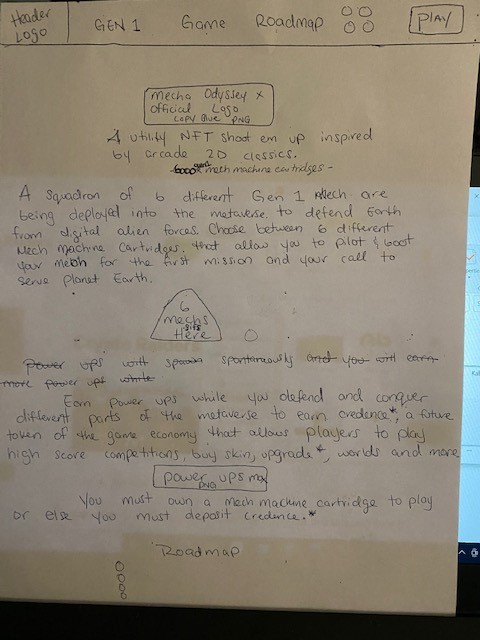 Header Logo
GEN 1
Game
Roadmap
PLAY
Mecha Odyssey x
Official Logo
LOPV Blue PNG
A utility NFT shoot em up inspired
by arcade 2D classics.
- 6000 gen1 mech machine cartridges -
A squadron of 6 different Gen 1 Mech are
being deployed into the metaverse to defend Earth
from digital alien forces. Choose between 6 different
Mech Machine Cartridges. that allow you to pilot & boot
your mech for the first mission and your call to
serve Planet Earth.
6
mechs
gifs
Here
Power ups with spawn spontaneously and you will earn
more power ups while
Earn power ups while you defend and conquer
different parts of the metaverse to earn credence*, a future
token of the game economy that allows players to play
high score competitions, buy skin, upgrade*, worlds and more
power ups
PNG
You must own a mech machine cartridge to play
or else you must deposit credence.*
Roadmap